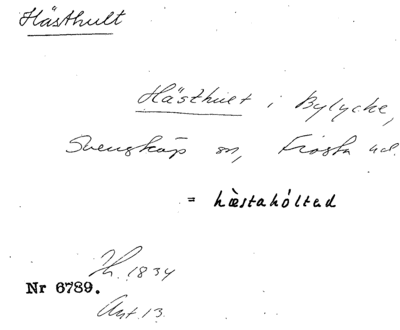 Hästhult
Hästhult i Bylycke,
Svensköp sn, Frosta hd.
= hæ̀stahóltad
Nr 6789.
Jh. 1834
Ant. 13.